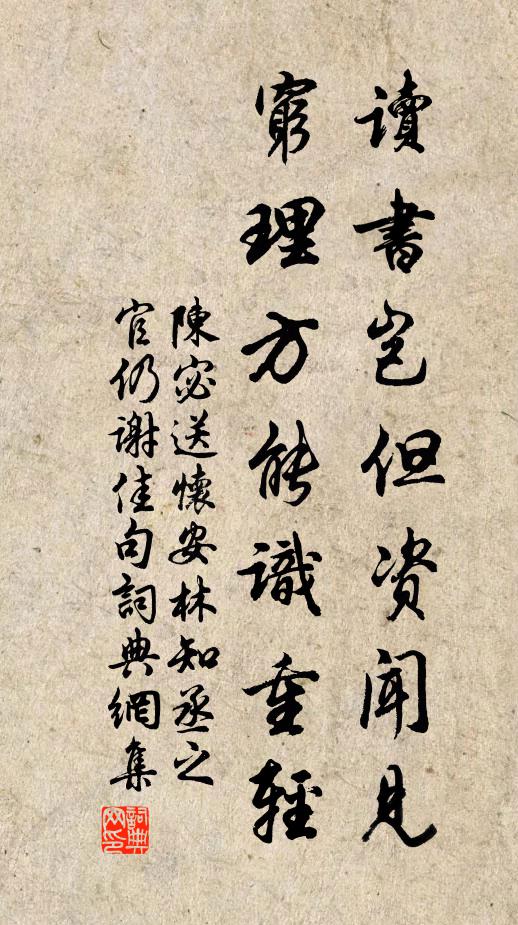 讀書豈但資聞見
窮理方能識重輕
陳宓送懷安林知丞之
官仍謝佳句詞典網集
詞典網印